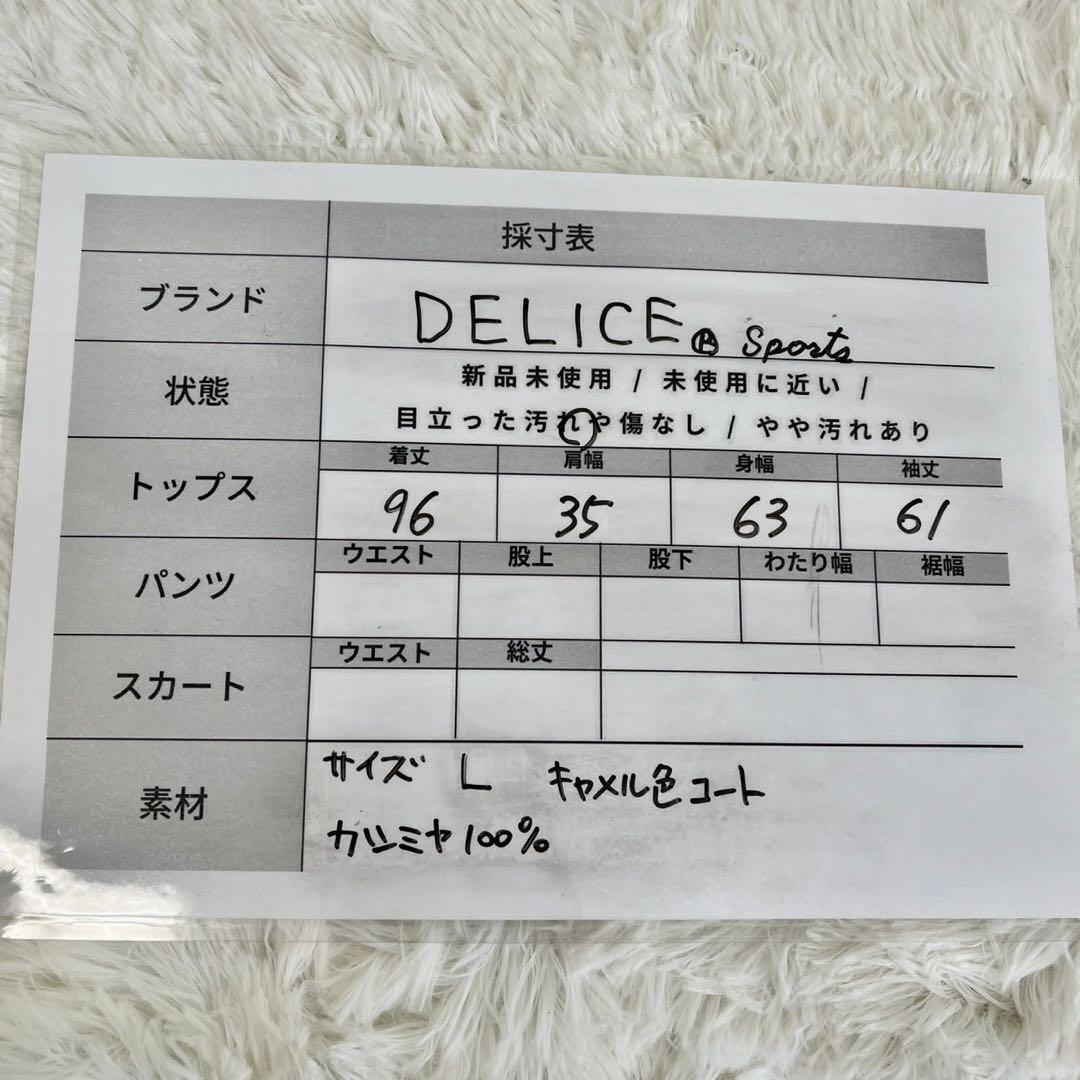 採寸表
ブランド DELICE Ⓡ Sports
状態 新品未使用 / 未使用に近い /
目立った汚れや傷なし / やや汚れあり
トップス 着丈 肩幅 身幅 袖丈
96 35 63 61
パンツ ウエスト 股上 股下 わたり幅 裾幅
スカート ウエスト 総丈
素材 サイズ L キャメル色コート
カシミヤ100%